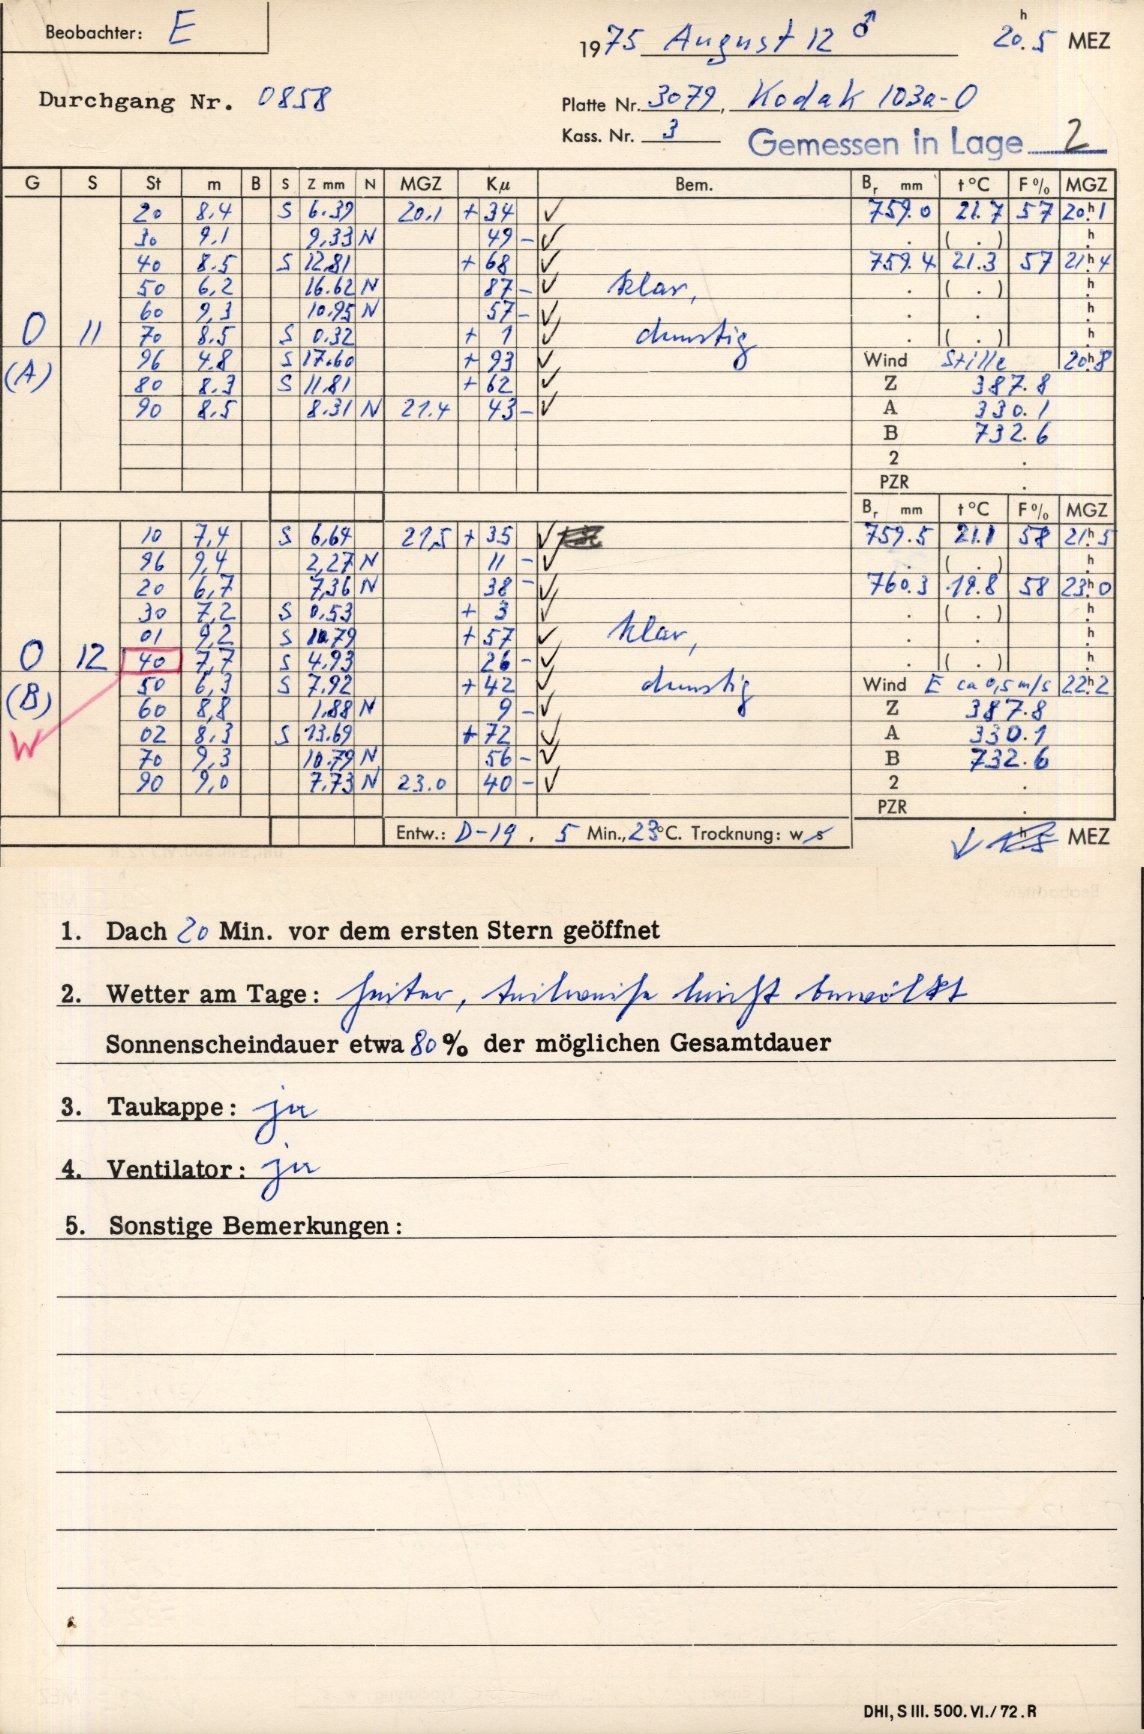 Beobachter: E
1975 August 12 ♂ 20h.5 MEZ
Durchgang Nr. 0858
Platte Nr. 3079, Kodak 103a-O
Kass. Nr. 3 Gemessen in Lage 2
G S St m B S Z mm N MGZ Kμ Bem. Br mm t °C F% MGZ
20 8.4 S 6.39 20.1 + 34 ✓ 759.0 21.7 57 20h1
30 9.1 9.33 N 49 - ✓ . ( . ) h.
40 8.5 S 12.81 + 68 ✓ 759.4 21.3 57 21h4
50 6.2 16.62 N 87 - ✓ klar, . ( . ) h.
60 9.3 10.95 N 57 - ✓ . . h.
0 11 70 8.5 S 0.32 + 1 ✓ dunstig . ( . ) h.
(A) 96 4.8 S 17.60 + 93 ✓ Wind Stille 20h8
80 8.3 S 11.81 + 62 ✓ Z 387.8
90 8.5 8.31 N 21.4 43 - ✓ A 330.1
B 732.6
2 .
PZR .
Br mm t °C F% MGZ
10 7,4 S 6,64 21,5 + 35 ✓ 759.5 21.1 58 21h5
96 9,4 2,27 N 11 - ✓ . ( . ) h.
20 6,7 7,36 N 38 - ✓ 760.3 19.8 58 23h0
30 7,2 S 0,53 + 3 ✓ . ( . ) h.
01 9,2 S 10.79 + 57 ✓ klar, . . h.
0 12 40 7,7 S 4,93 26 - ✓ . ( . ) h.
(B) 50 6,3 S 7.92 + 42 ✓ dunstig Wind E ca 0,5 m/s 22h2
60 8,8 1,88 N 9 - ✓ Z 387.8
W 02 8,3 S 13.69 + 72 ✓ A 330.1
70 9,3 10.79 N 56 - ✓ B 732.6
90 9,0 7.73 N 23.0 40 - ✓ 2 .
PZR .
Entw.: D-19, 5 Min., 23°C. Trocknung: w s MEZ
1. Dach 20 Min. vor dem ersten Stern geöffnet
2. Wetter am Tage: heiter, teilweise leicht bewölkt
Sonnenscheindauer etwa 80 % der möglichen Gesamtdauer
3. Taukappe: ja
4. Ventilator: ja
5. Sonstige Bemerkungen:
DHI, S III. 500. VI./72. R